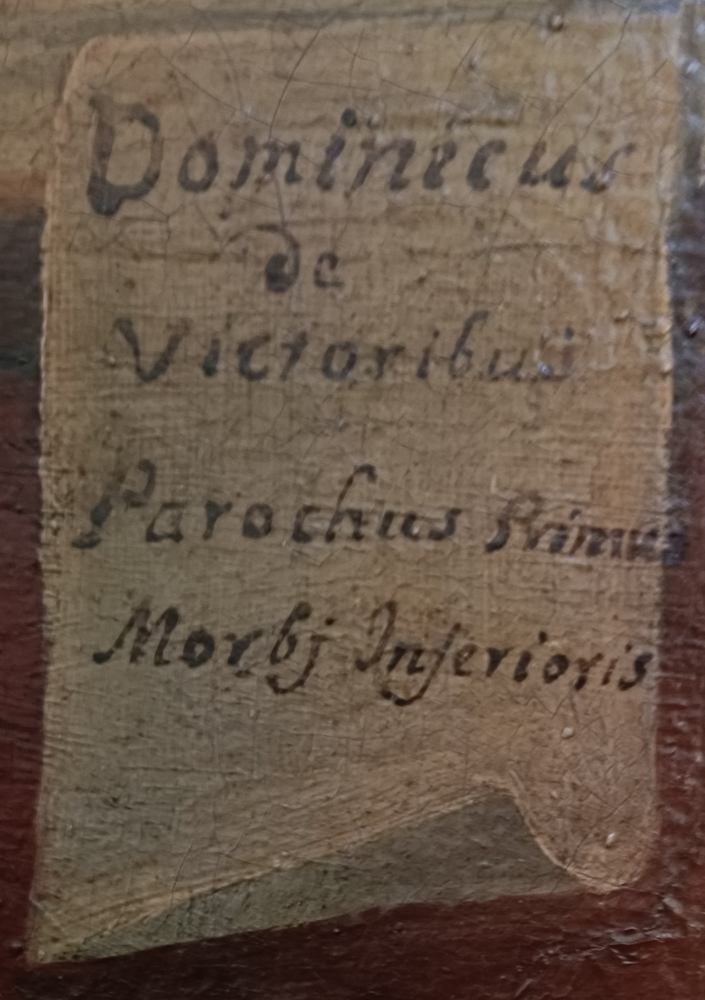 Dominicus
de
Victoribus
Parochus Primus
Morbj Inferioris